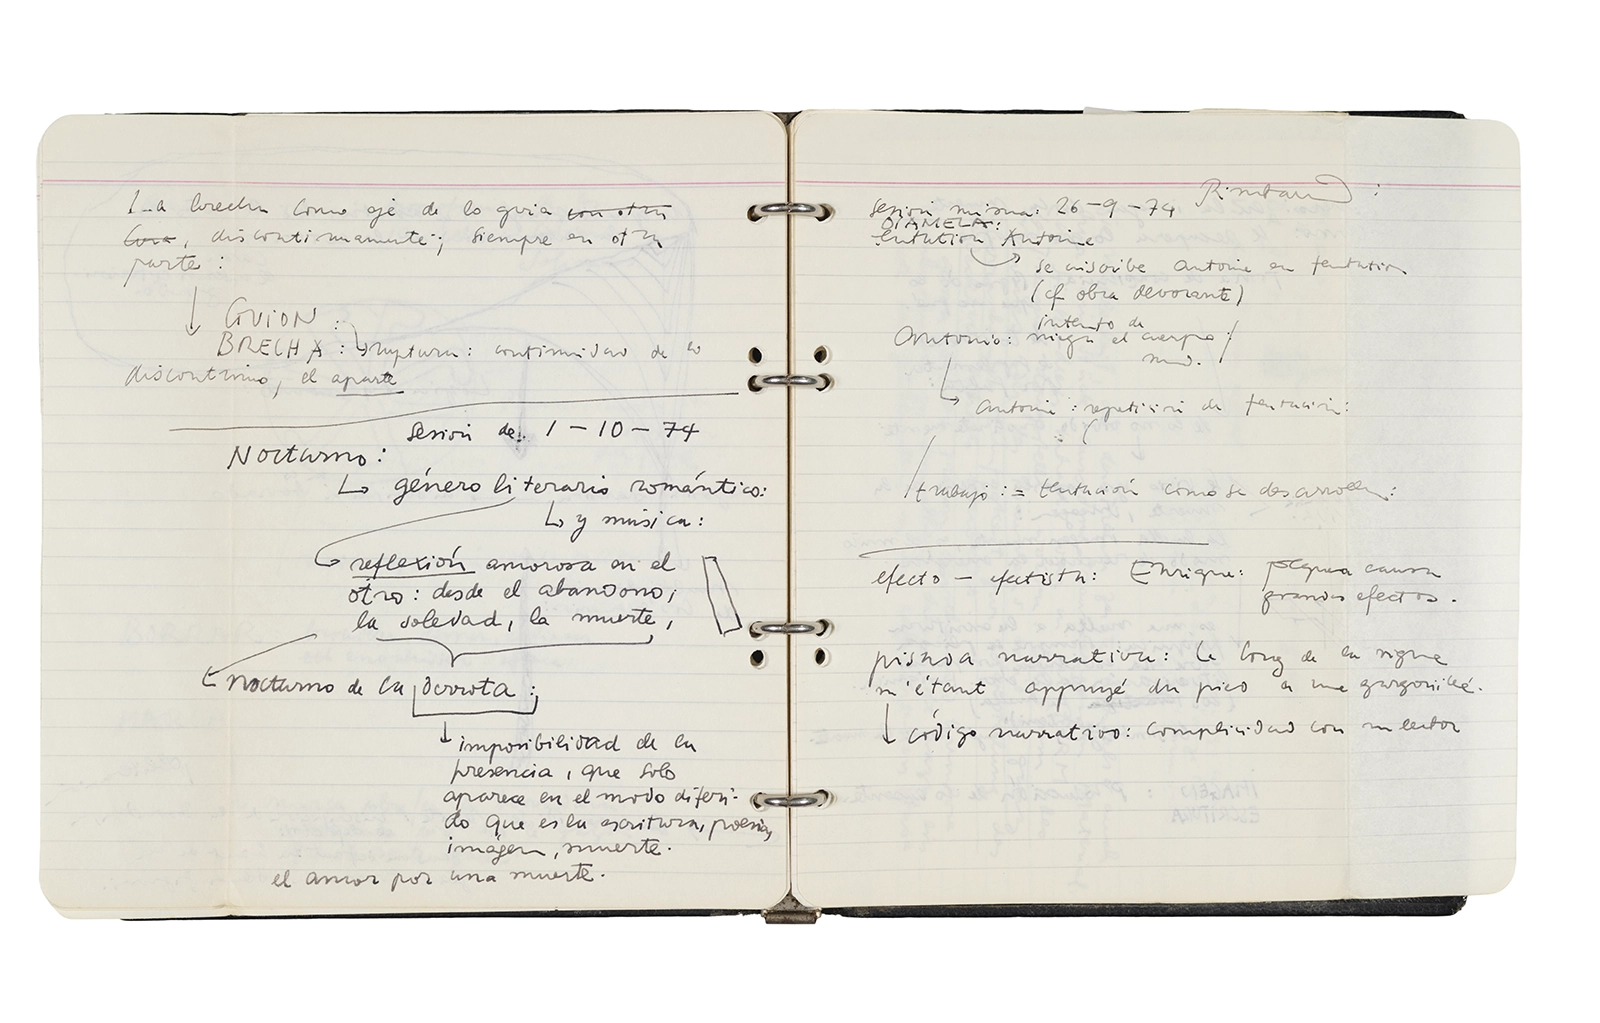 La brecha como eje de lo guia con otra
cosa, discontinuamente; siempre en otra
parte:
GUION:
BRECHA: ruptura: continuidad de lo
discontinuo, el aparte
Sesión de: 1-10-74
Nocturno:
género literario romántico:
y música:
reflexión amorosa en el
otro: desde el abandono,
la soledad, la muerte,
nocturno de la derrota:
imposibilidad de la
presencia, que solo
aparece en el modo diferi-
do que es la escritura, poesía,
imágen, muerte.
el amor por una muerte.
Rimbaud:
Sesión misma: 26-9-74
DIAMELA:
tentation Antoine
se inscribe Antoine en tentation
(cf obra devorante)
intento de
Antonio: niega el cuerpo
Antoine: repetición de tentación:
trabajo := tentación como se desarrolla:
efecto - efectista: Enrique: pequeña causa
grandes efectos.
narrativa: Le long de la vigne
m'étant appuyé du pied a une gargouille.
código narrativo: complicidad con un lector
IMAGEN:
ESCRITURA